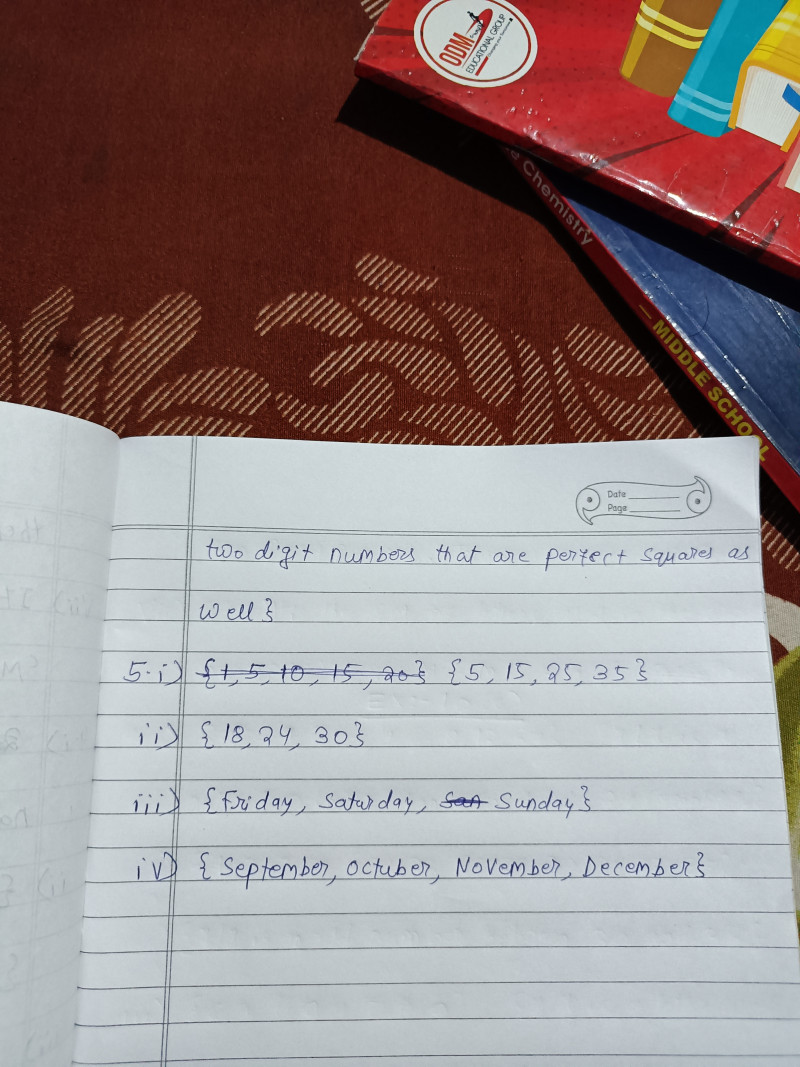 ODM
EDUCATIONAL GROUP
Chemistry
— MIDDLE SCHOOL
Date
Page
two digit numbers that are perfect squares as
well}
5.i) {1, 5, 10, 15, 20} {5, 15, 25, 35}
ii) {18, 24, 30}
iii) {Friday, Saturday, San Sunday}
iv) {September, octuber, November, December}